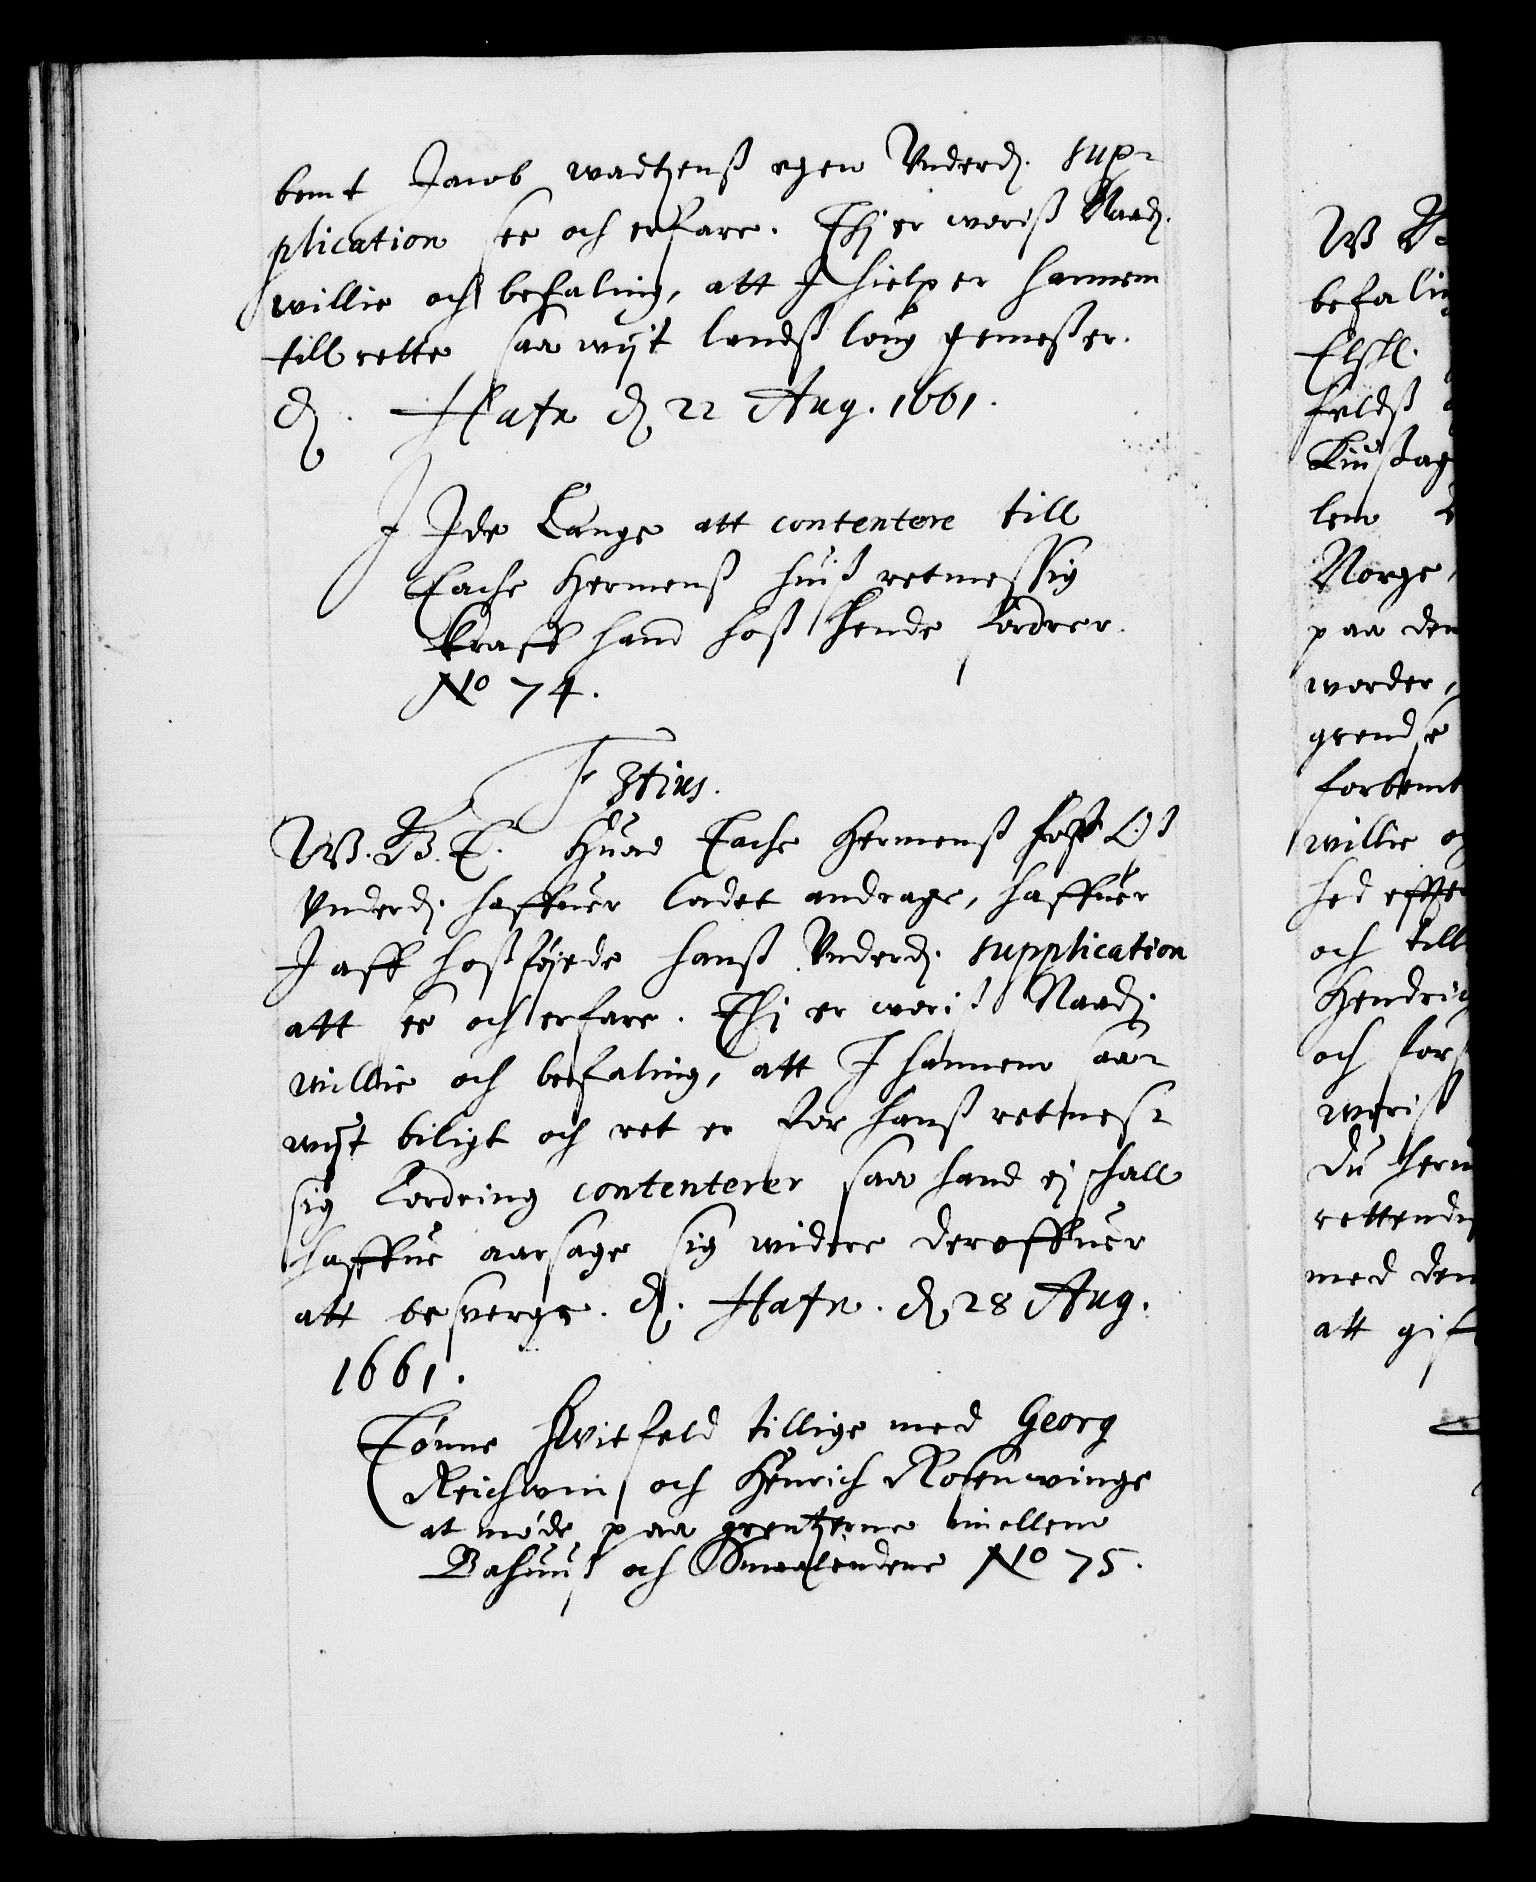 bemt Jacob wadtzenß egen Vnderd. sup-
plication see och erfare. Thj er woriß Naad.
willie och befaling, att I hielper hannem
till rette saa wijt landß loug gemeßer.
D. Hafn d. 22 Aug. 1661.
Ide Lange att contentere till
Tache Hermenß huiß retmessig
kraff hand hoß hende fordrer.
No 74.
F 3tius.
W. B. T. Huad Tache Hermenß hoß Oß
Vnderd. haffuer ladet andrage, haffuer
I aff hoßføjede hanß Vnderd. supplication
att see och erfare. Thj er woriß Naad.
willie och befaling, att I hannem saa
wijt biligt och ret er for hanß retmes-
sig fordring contenterer saa hand ej schall
haffue aarsage sig widere deroffuer
att besverge. D. Hafn. d. 28 Aug.
1661.
Tønne Hvitfeld tillige med Georg
Reichwin och Henrich Rosenwinge
at møde paa grentzerne imellem
Bahuuß och Smaalendene No 75.
W B
befalin
Elskl.
feldß
lem
Norge,
paa den
worder,
grendse
forbemt
willie o
hed effte
och till
Hendric
och for
woriß
du herm
rettende
med den
att gif